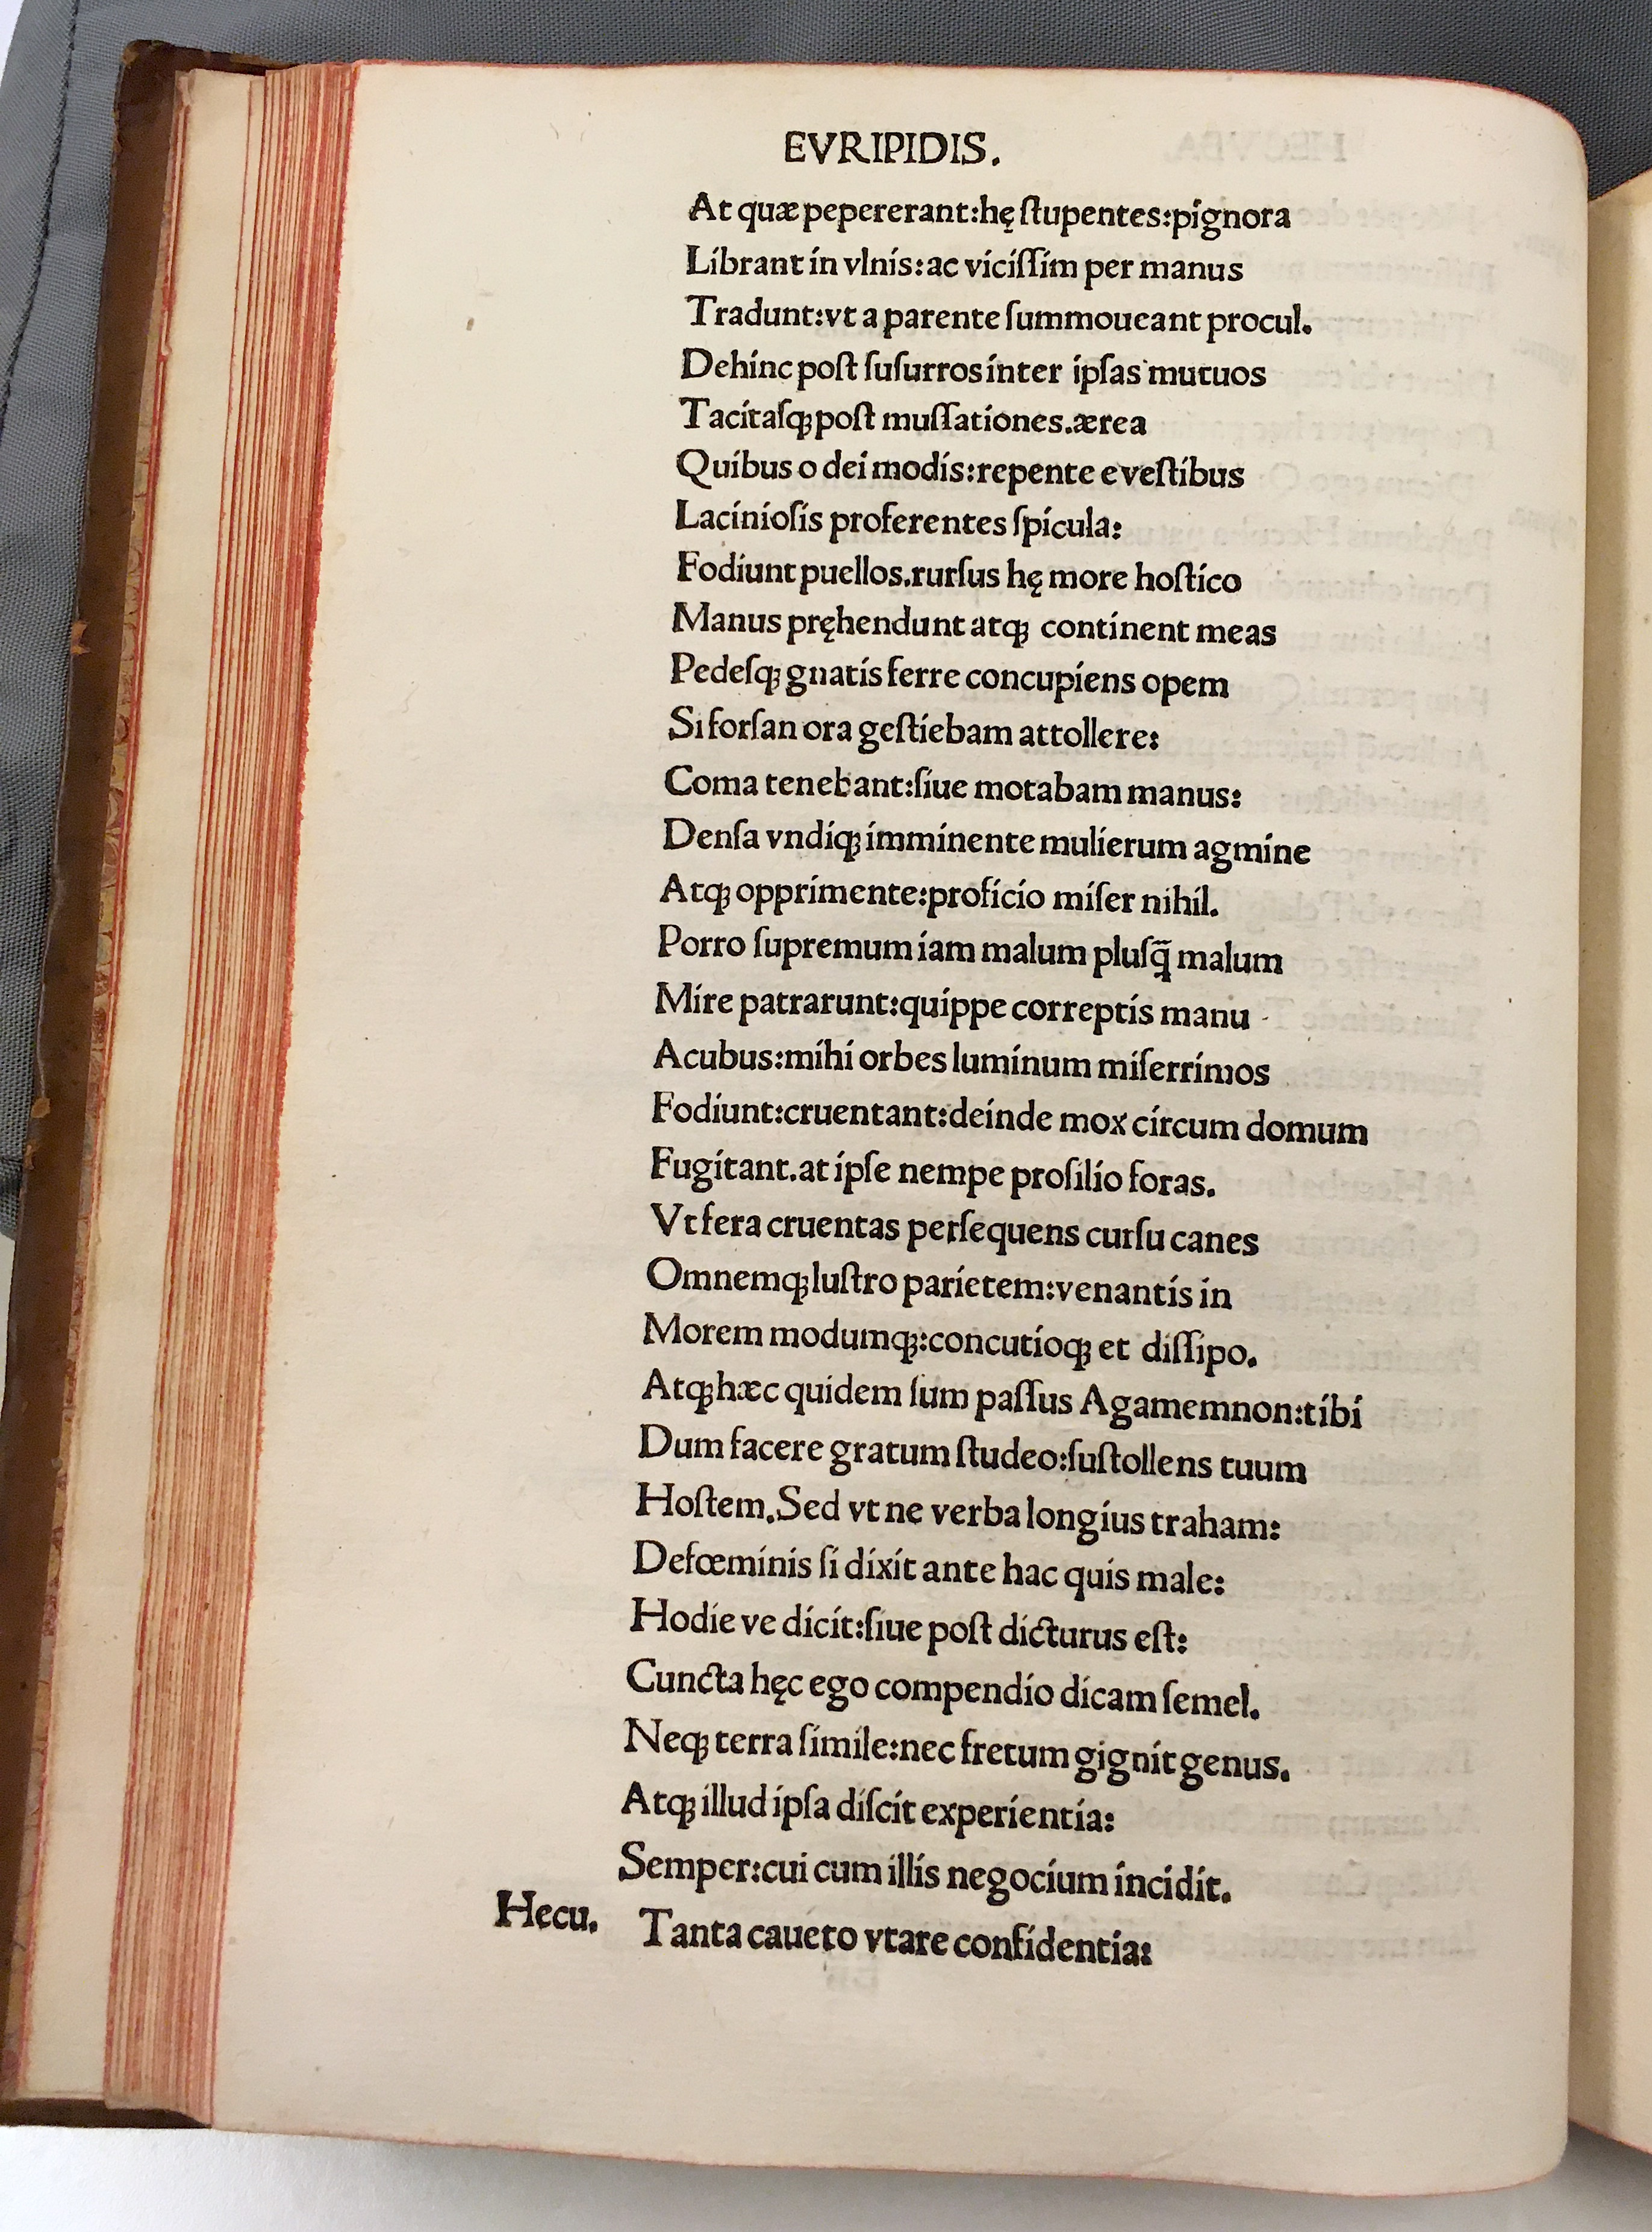 EVRIPIDIS.
At quæ pepererant:hę ſtupentes:pignora
Librant in vlnis:ac viciſſim per manus
Tradunt:vt a parente ſummoueant procul.
Dehinc poſt ſuſurros inter ipſas mutuos
Tacitaſqꝫ poſt muſſationes.ærea
Quibus o dei modis:repente e veſtibus
Lacinioſis proferentes ſpicula:
Fodiunt puellos.rurſus hę more hoſtico
Manus pręhendunt atqꝫ continent meas
Pedeſqꝫ gnatis ferre concupiens opem
Si forſan ora geſtiebam attollere:
Coma tenebant:ſiue motabam manus:
Denſa vndiqꝫ imminente mulierum agmine
Atqꝫ opprimente:proficio miſer nihil.
Porro ſupremum iam malum pluſq̃ malum
Mire patrarunt:quippe correptis manu
Acubus:mihi orbes luminum miſerrimos
Fodiunt:cruentant:deinde mox circum domum
Fugitant.at ipſe nempe proſilio foras.
Vt fera cruentas perſequens curſu canes
Omnemqꝫ luſtro parietem:venantis in
Morem modumqꝫ:concutioqꝫ et diſſipo.
Atqꝫ hæc quidem ſum paſſus Agamemnon:tibi
Dum facere gratum ſtudeo:ſuſtollens tuum
Hoſtem.Sed vt ne verba longius traham:
De fœminis ſi dixit ante hac quis male:
Hodie ve dicit:ſiue poſt dicturus eſt:
Cuncta hęc ego compendio dicam ſemel.
Neqꝫ terra ſimile:nec fretum gignit genus.
Atqꝫ illud ipſa diſcit experientia:
Semper:cui cum illis negocium incidit.
Hecu. Tanta caueto vtare confidentia: